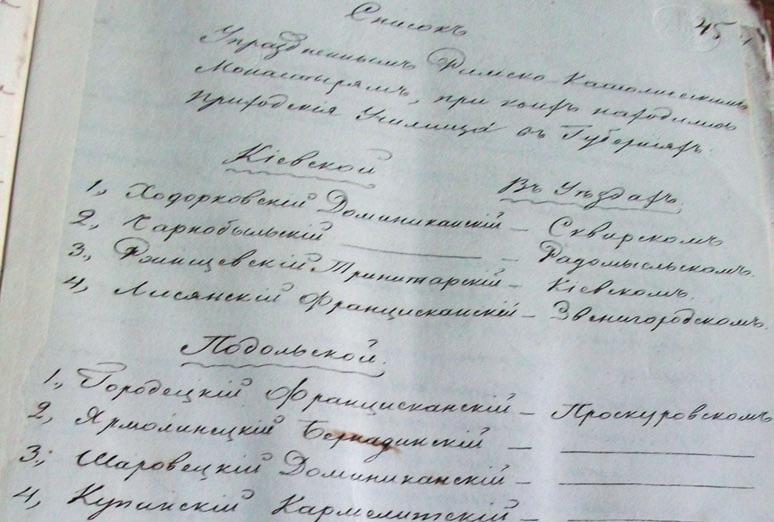 Списокъ
45
Упраздненнымъ Римско Католическимъ
Монастырямъ, при коихъ находились
Приходскія Училища въ Губерніяхъ.
Кіевской
Въ Уѣздахъ
1., Ходорковскій Доминиканскій – Сквирскомъ
2., Чарнобыльскій ——— – Радомысльскомъ.
3., Ржищевскій Тринитарскій – Кіевскомъ.
4., Лисянскій Францисканскій – Звенигородскомъ.
Подольской.
1., Городецкій Францисканскій – Проскуровскомъ
2., Ярмолинецкій Бернадинскій – ———
3., Шаровецкій Доминиканскій – ———
4., Купинскій Кармелитскій – ———